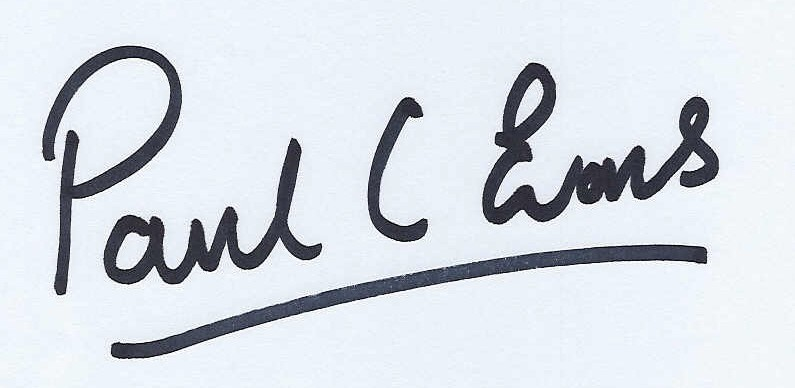 Paul C Evans